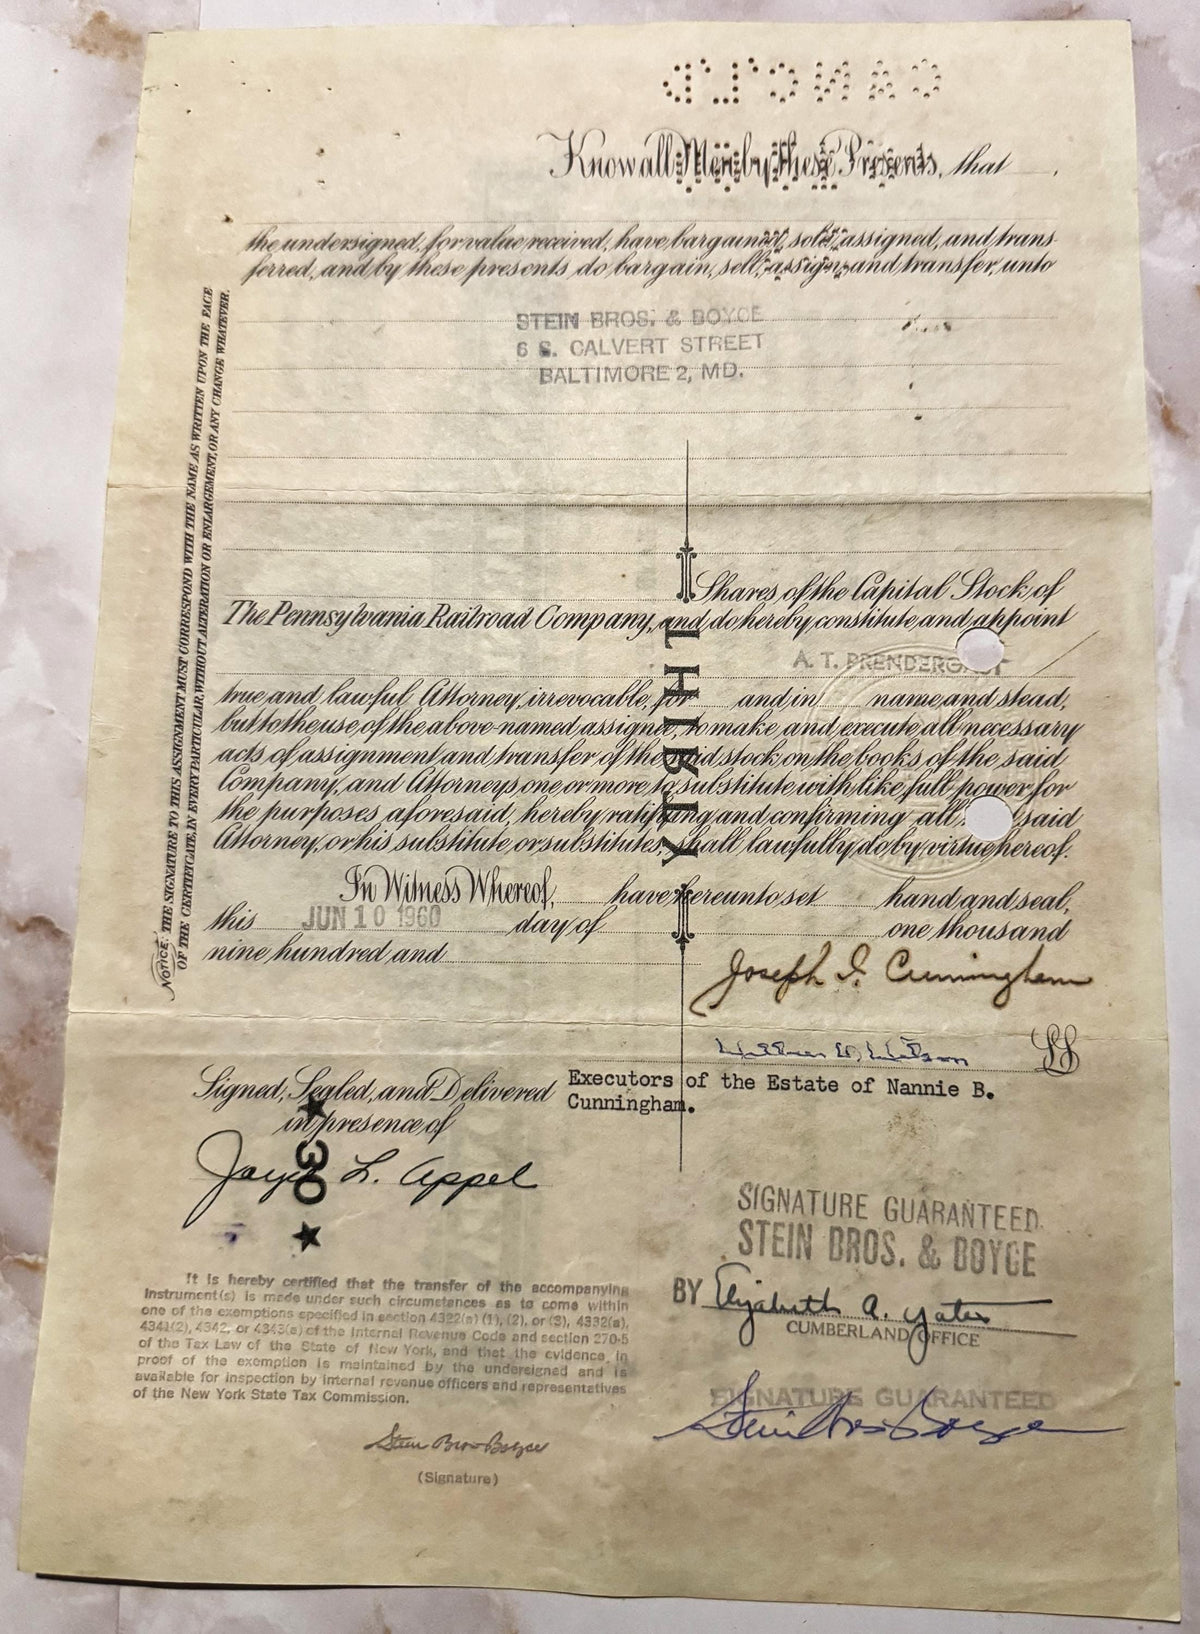 Know all Men by these Presents, that
the undersigned, for value received, have bargained, sold, assigned, and trans-
ferred, and by these presents do bargain, sell, assign, and transfer, unto
STEIN BROS. & BOYCE
6 S. CALVERT STREET
BALTIMORE 2, MD.
Shares of the Capital Stock of
The Pennsylvania Railroad Company, and do hereby constitute and appoint
A. T. PRENDERGAST
true and lawful Attorney, irrevocable, for and in name and stead,
but to the use of the above-named assignee, to make and execute all necessary
acts of assignment and transfer of the said stock on the books of the said
Company, and Attorneys one or more to substitute with like full power, for
the purposes aforesaid, hereby ratifying and confirming all said
Attorney, or his substitute, or substitutes, shall lawfully do by virtue hereof.
In Witness Whereof, have hereunto set hand and seal,
this JUN 10 1960 day of one thousand
nine hundred and
Joseph I. Cunningham
LS
Executors of the Estate of Nannie B.
Cunningham.
Signed, Sealed, and Delivered
in presence of
L. Appel
THIRTY
★ 30 ★
SIGNATURE GUARANTEED
STEIN BROS. & BOYCE
BY Elizabeth A. Yates
CUMBERLAND OFFICE
SIGNATURE GUARANTEED
Stein Bros Boyce
It is hereby certified that the transfer of the accompanying
instrument(s) is made under such circumstances as to come within
one of the exemptions specified in section 4322(a) (1), (2), or (3), 4332(a),
4341(2), 4342, or 4343(a) of the Internal Revenue Code and section 270-5
of the Tax Law of the State of New York, and that the evidence in
proof of the exemption is maintained by the undersigned and is
available for inspection by internal revenue officers and representatives
of the New York State Tax Commission.
Stein Bros Boyce
(Signature)
NOTICE: THE SIGNATURE TO THIS ASSIGNMENT MUST CORRESPOND WITH THE NAME AS WRITTEN UPON THE FACE
OF THE CERTIFICATE, IN EVERY PARTICULAR, WITHOUT ALTERATION OR ENLARGEMENT, OR ANY CHANGE WHATEVER.